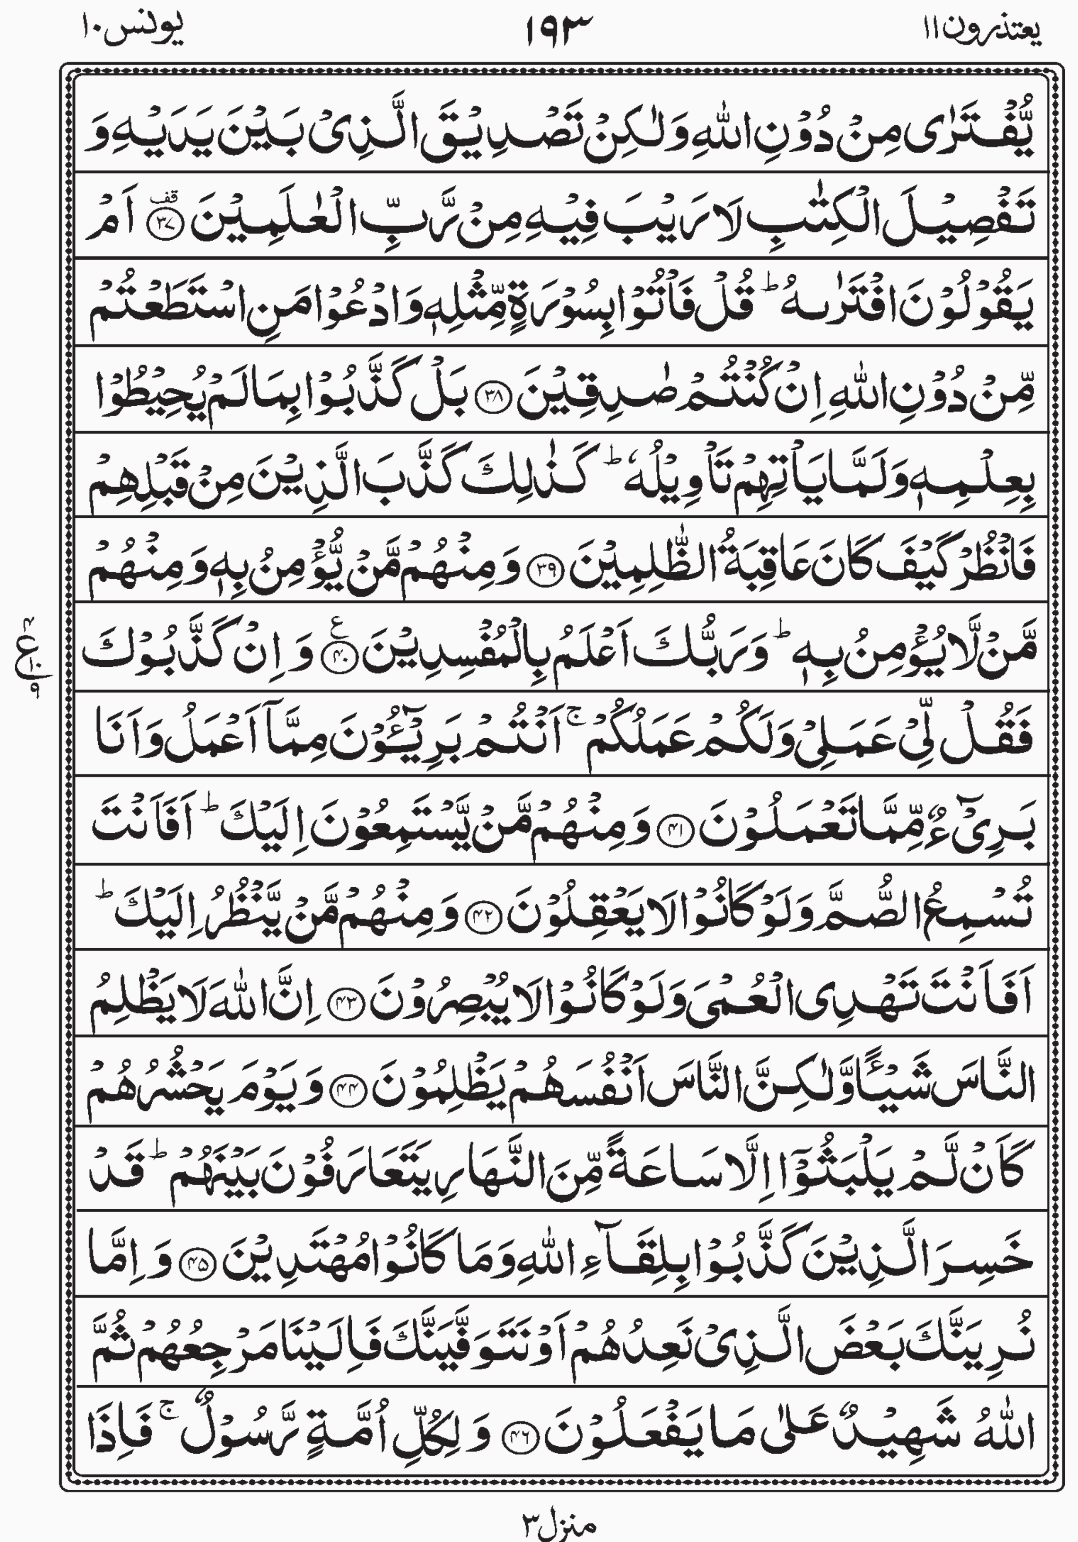 يعتذرون ۱۱ ۱۹۳ يونس ۱۰
يُّفْتَرٰى مِنْ دُوْنِ اللّٰهِ وَلٰكِنْ تَصْدِيْقَ الَّذِىْ بَيْنَ يَدَيْهِ وَ
تَفْصِيْلَ الْكِتٰبِ لَا رَيْبَ فِيْهِ مِنْ رَّبِّ الْعٰلَمِيْنَ ۣ ﴿۳۷﴾ اَمْ
يَقُوْلُوْنَ افْتَرٰىهُ ؕ قُلْ فَاْتُوْا بِسُوْرَةٍ مِّثْلِهٖ وَادْعُوْا مَنِ اسْتَطَعْتُمْ
مِّنْ دُوْنِ اللّٰهِ اِنْ كُنْتُمْ صٰدِقِيْنَ ﴿۳۸﴾ بَلْ كَذَّبُوْا بِمَا لَمْ يُحِيْطُوْا
بِعِلْمِهٖ وَلَمَّا يَاْتِهِمْ تَاْوِيْلُهٗ ؕ كَذٰلِكَ كَذَّبَ الَّذِيْنَ مِنْ قَبْلِهِمْ
فَانْظُرْ كَيْفَ كَانَ عَاقِبَةُ الظّٰلِمِيْنَ ﴿۳۹﴾ وَمِنْهُمْ مَّنْ يُّؤْمِنُ بِهٖ وَمِنْهُمْ
مَّنْ لَّا يُؤْمِنُ بِهٖ ؕ وَرَبُّكَ اَعْلَمُ بِالْمُفْسِدِيْنَ ﴿۴۰﴾ ع وَ اِنْ كَذَّبُوْكَ
فَقُلْ لِّىْ عَمَلِىْ وَلَكُمْ عَمَلُكُمْ ۚ اَنْتُمْ بَرِيْٓـُٔوْنَ مِمَّاۤ اَعْمَلُ وَاَنَا
بَرِىْٓءٌ مِّمَّا تَعْمَلُوْنَ ﴿۴۱﴾ وَمِنْهُمْ مَّنْ يَّسْتَمِعُوْنَ اِلَيْكَ ؕ اَفَاَنْتَ
تُسْمِعُ الصُّمَّ وَلَوْ كَانُوْا لَا يَعْقِلُوْنَ ﴿۴۲﴾ وَمِنْهُمْ مَّنْ يَّنْظُرُ اِلَيْكَ ؕ
اَفَاَنْتَ تَهْدِى الْعُمْىَ وَلَوْ كَانُوْا لَا يُبْصِرُوْنَ ﴿۴۳﴾ اِنَّ اللّٰهَ لَا يَظْلِمُ
النَّاسَ شَيْـًٔا وَّلٰكِنَّ النَّاسَ اَنْفُسَهُمْ يَظْلِمُوْنَ ﴿۴۴﴾ وَيَوْمَ يَحْشُرُهُمْ
كَاَنْ لَّمْ يَلْبَثُوْۤا اِلَّا سَاعَةً مِّنَ النَّهَارِ يَتَعَارَفُوْنَ بَيْنَهُمْ ؕ قَدْ
خَسِرَ الَّذِيْنَ كَذَّبُوْا بِلِقَآءِ اللّٰهِ وَمَا كَانُوْا مُهْتَدِيْنَ ﴿۴۵﴾ وَ اِمَّا
نُرِيَنَّكَ بَعْضَ الَّذِىْ نَعِدُهُمْ اَوْ نَتَوَفَّيَنَّكَ فَاِلَيْنَا مَرْجِعُهُمْ ثُمَّ
اللّٰهُ شَهِيْدٌ عَلٰى مَا يَفْعَلُوْنَ ﴿۴۶﴾ وَ لِكُلِّ اُمَّةٍ رَّسُوْلٌ ۚ فَاِذَا
منزل ۳